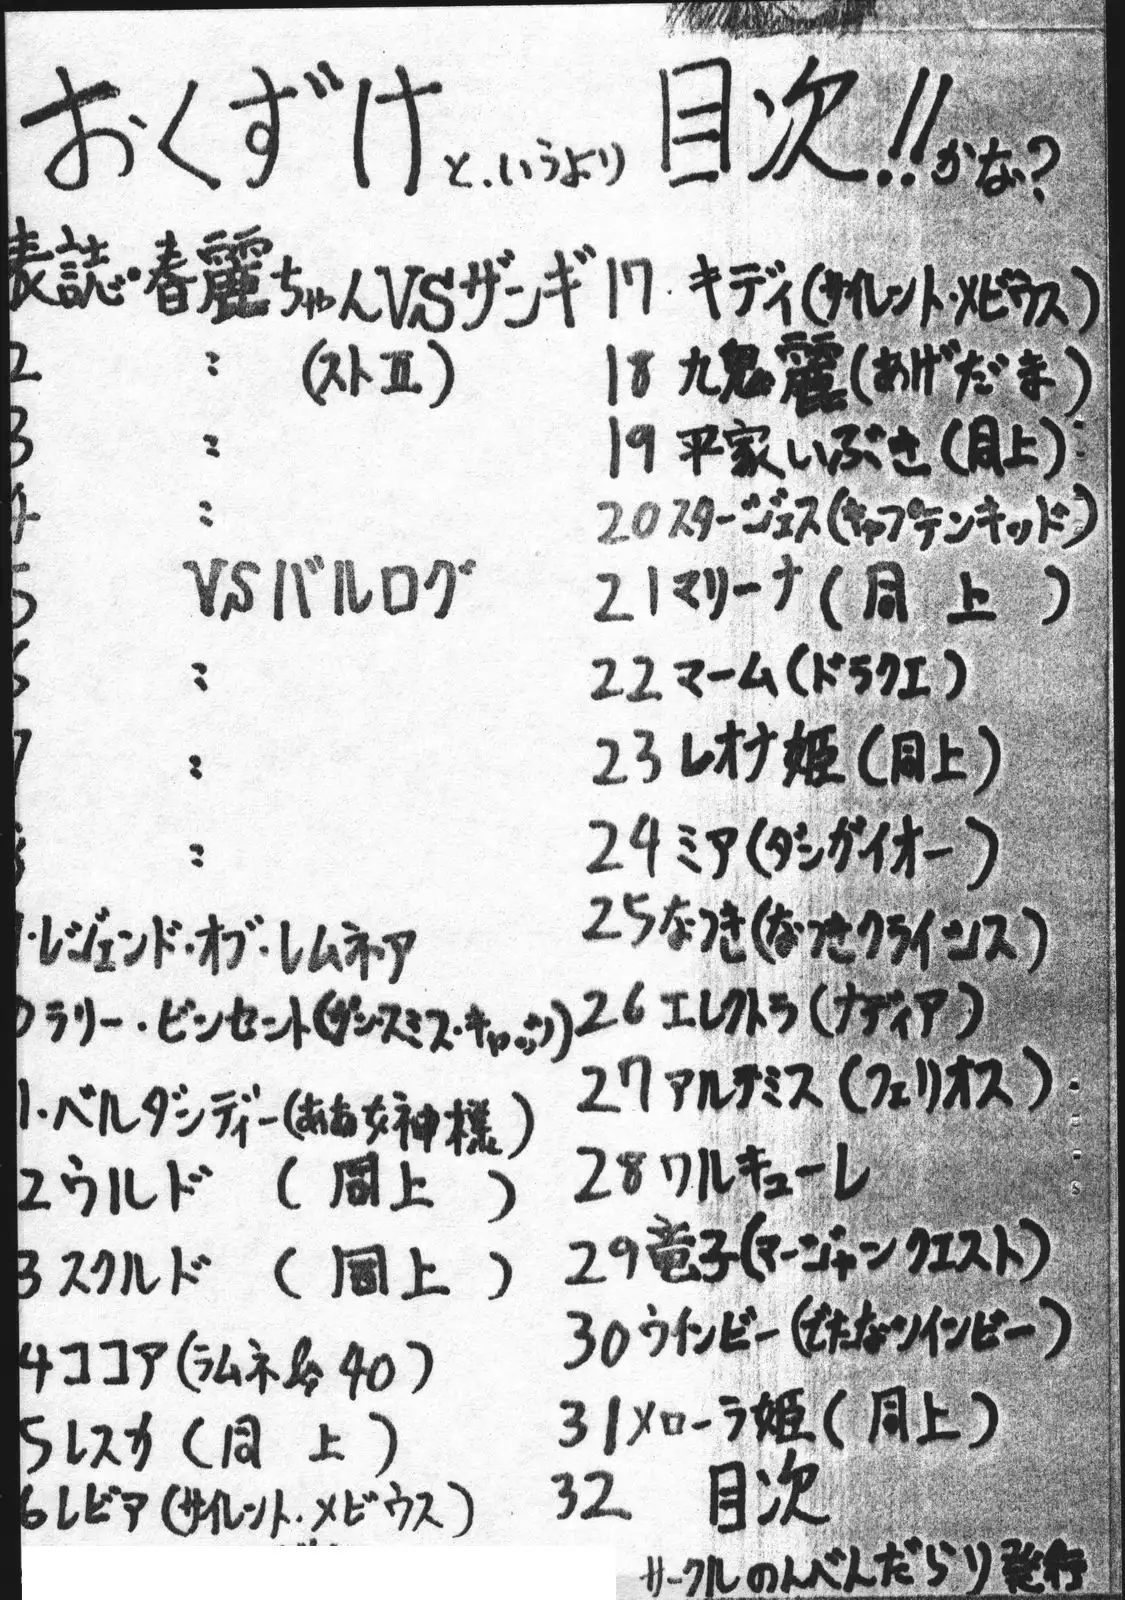 おくずけと、いうより 目次!!かな?
表誌・春麗ちゃんVSザンギ
2 〃 (ストII)
3 〃
4 〃
5 VSバルログ
6 〃
7 〃
8 〃
・レジェンド・オブ・レムネア
0ラリー・ビンセント(ガン・スミス・キャッツ)
1・ベルダンディー(ああ女神様)
2ウルド (同上)
3スクルド (同上)
4ココア(ラムネ&40)
5レスカ(同上)
6レビア(サイレント・メビウス)
17 キディ(サイレント・メビウス)
18 九鬼麗(あげだま)
19 平家いぶき(同上)
20 スタージェス(キャプテンキッド)
21マリーナ(同上)
22マーム(ドラクエ)
23 レオナ姫(同上)
24 ミア(ダンガイオー)
25なつき(なつきクライシス)
26 エレクトラ(ナディア)
27 アルテミス(フェリオス)
28 ワルキューレ
29竜子(マージャンクエスト)
30ウインビー(でたなツインビー)
31メローラ姫(同上)
32 目次
サークルのんべんだらり発行